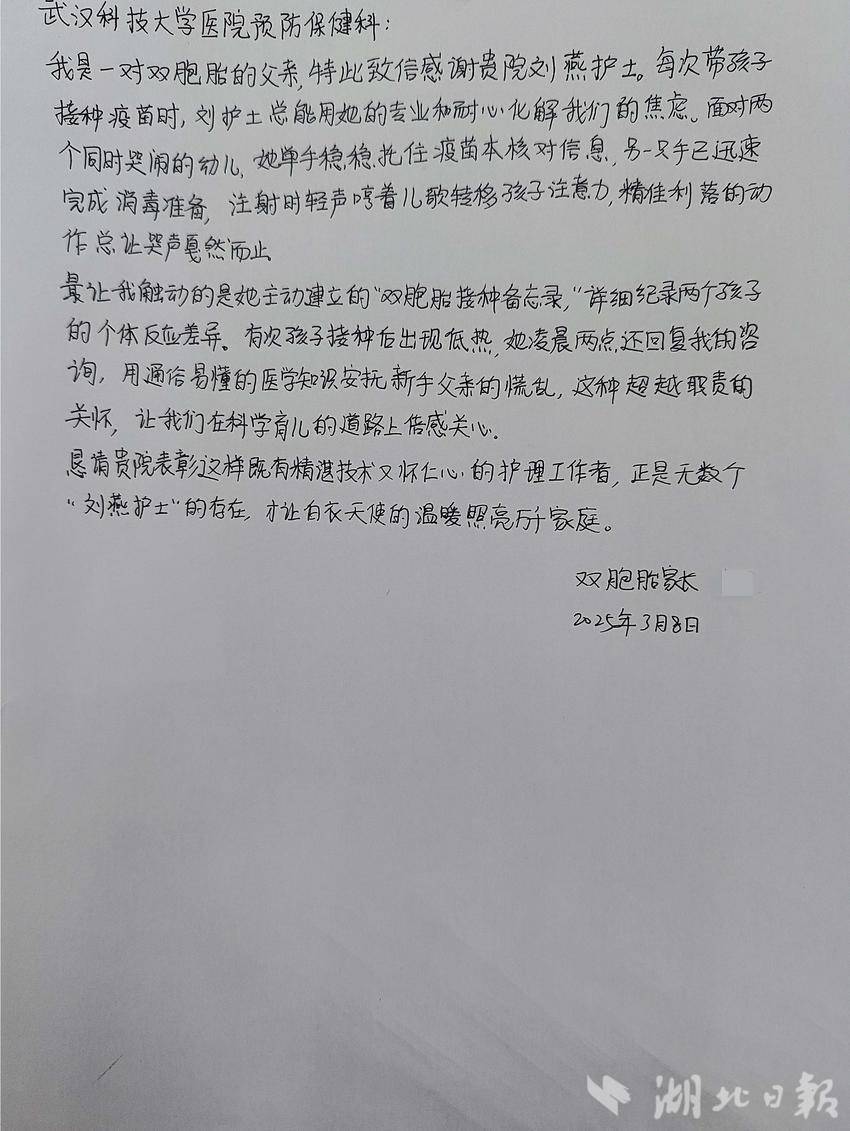 武汉科技大学医院预防保健科：
我是一对双胞胎的父亲，特此致信感谢贵院刘燕护士。每次带孩子
接种疫苗时，刘护士总能用她的专业和耐心化解我们的焦虑。面对两
个同时哭闹的幼儿，她单手稳稳托住疫苗本核对信息，另一只手已迅速
完成消毒准备，注射时轻声哼着儿歌转移孩子注意力，精准利落的动
作总让哭声戛然而止。
最让我触动的是她主动建立的“双胞胎接种备忘录，”详细纪录两个孩子
的个体反应差异。有次孩子接种后出现低热，她凌晨两点还回复我的咨
询，用通俗易懂的医学知识安抚新手父亲的慌乱，这种超越职责的
关怀，让我们在科学育儿的道路上倍感关心。
恳请贵院表彰这样既有精湛技术又怀仁心的护理工作者，正是无数个
“刘燕护士”的存在，才让白衣天使的温暖照亮万千家庭。
双胞胎家长
2025年3月8日
湖北日報